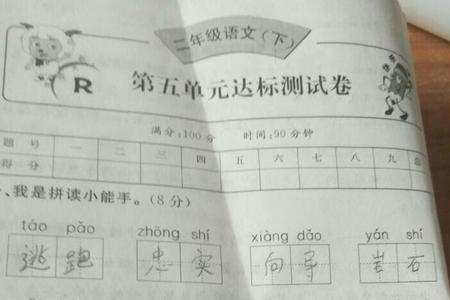 二年级语文(下)
R
第五单元达标测试卷
满分:100分 时间:90分钟
题号 一 二 三 四 五 六 七 八 九 总
得分
、我是拼读小能手。(8分)
táo pǎo zhōng shí xiàng dǎo yán shí
逃跑 忠实 向导 岩石